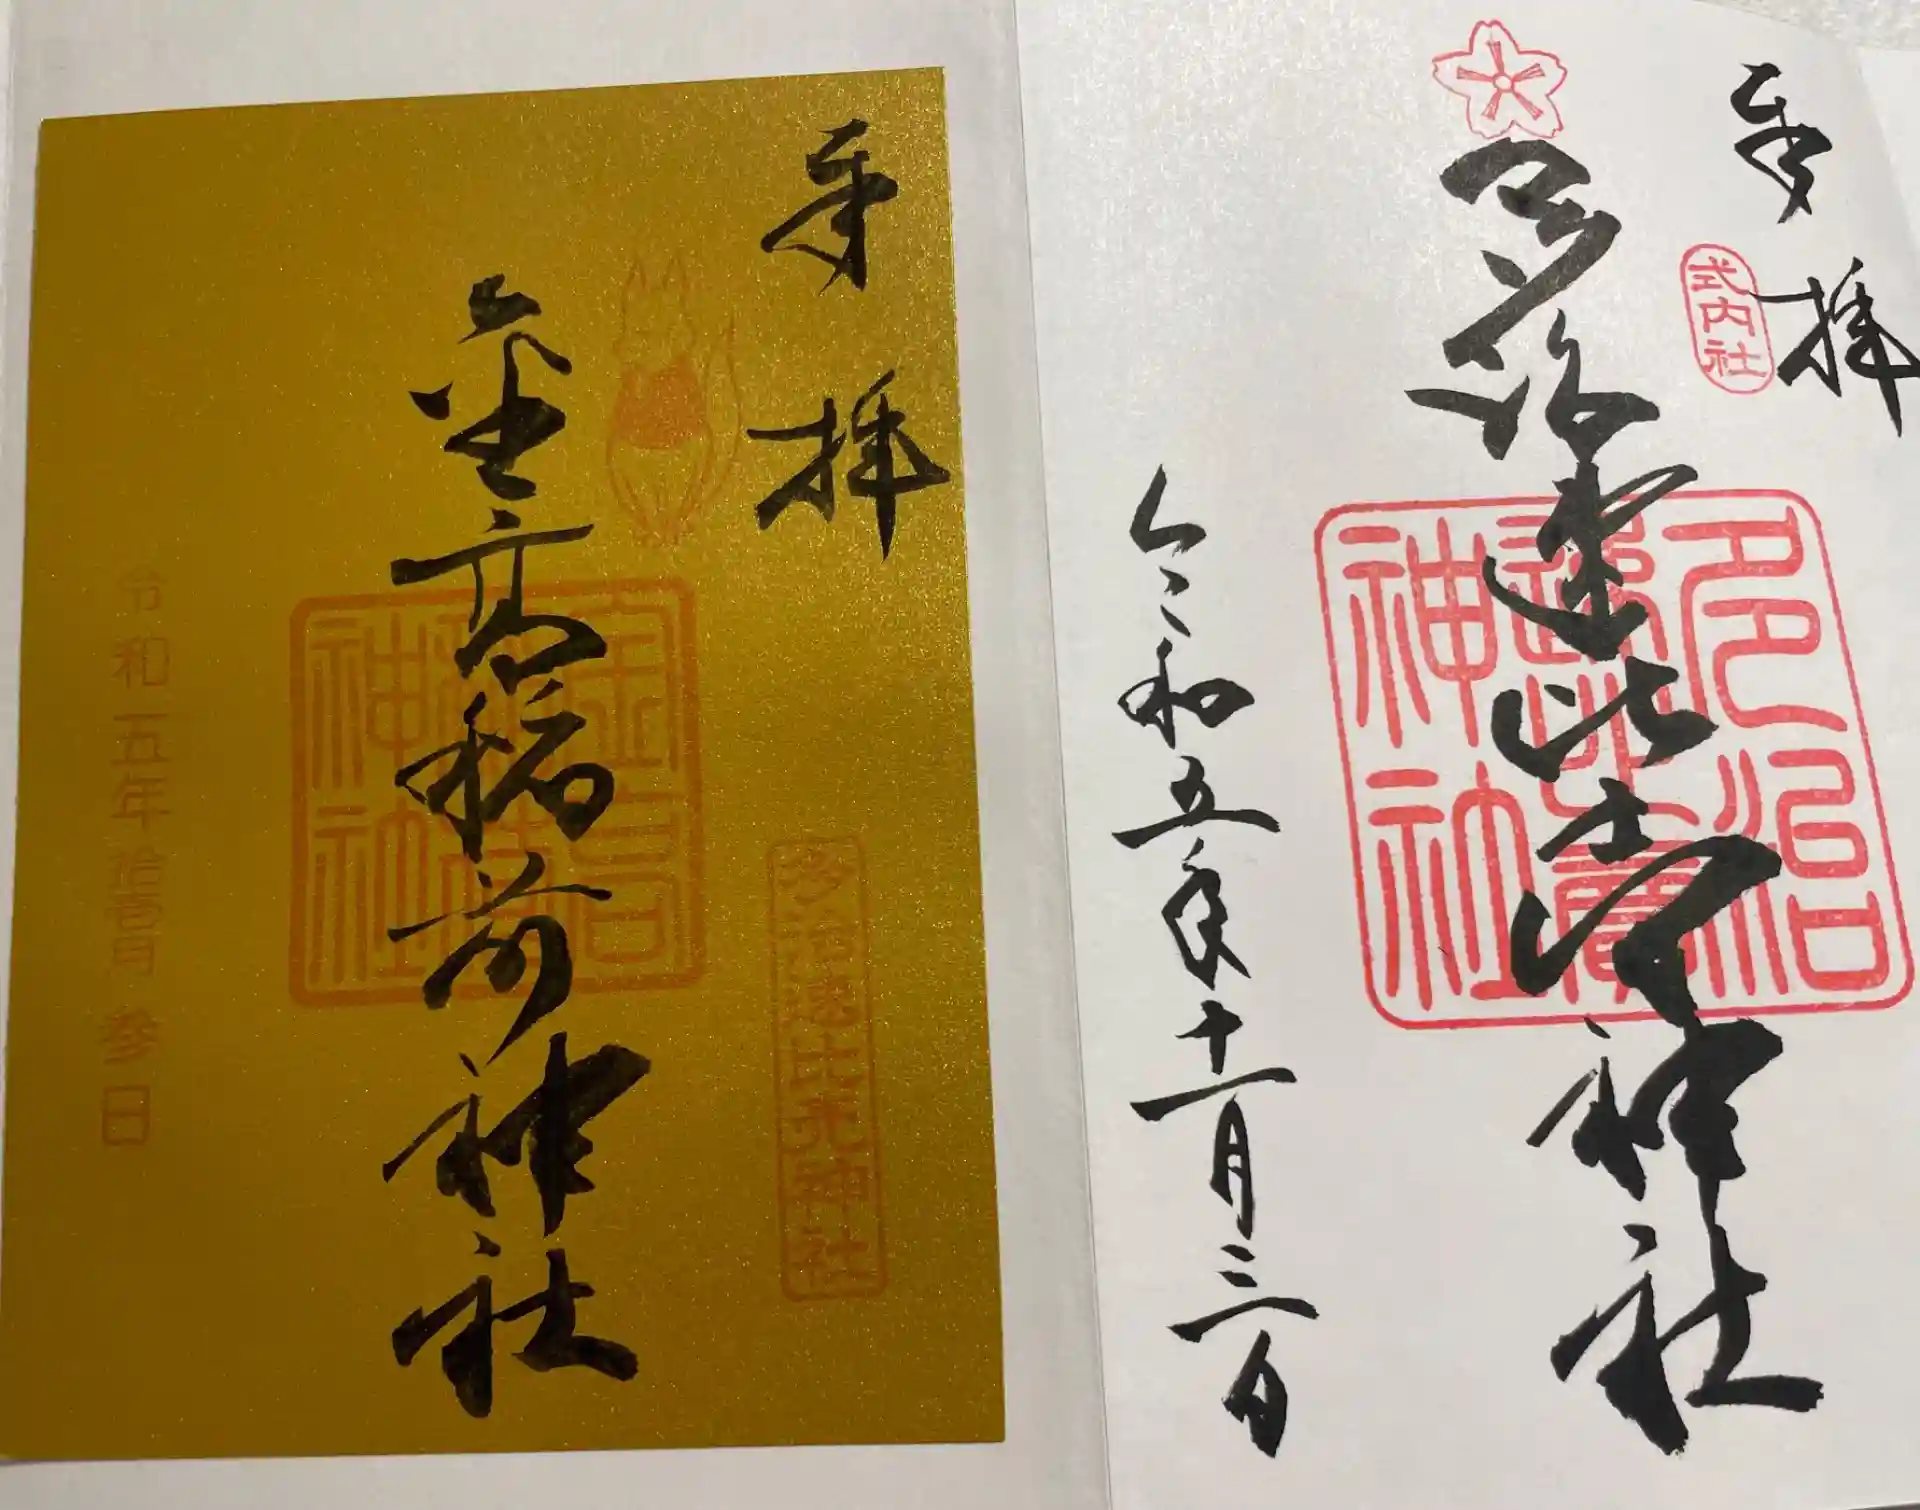 奉拝
式内社
多治速比売神社
多治
速比賣
神社
令和五年十一月三日
奉拝
多治速比売神社
金高稲荷神社
金高
稲荷
神社
令和五年拾壹月参日